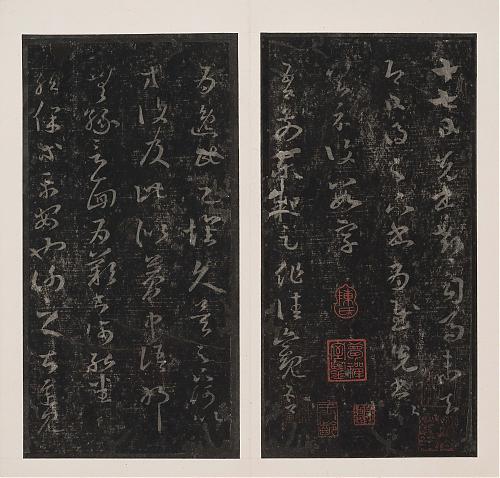 十七日先書郗司馬未去
即日得足下書為慰先書以
具示復數字
吾前東粗足作佳觀吾
為逸民之懷久矣足下何以
方復及此似夢中語耶
無緣言面為歎書何能悉
龍保等平安也謝之甚遲見